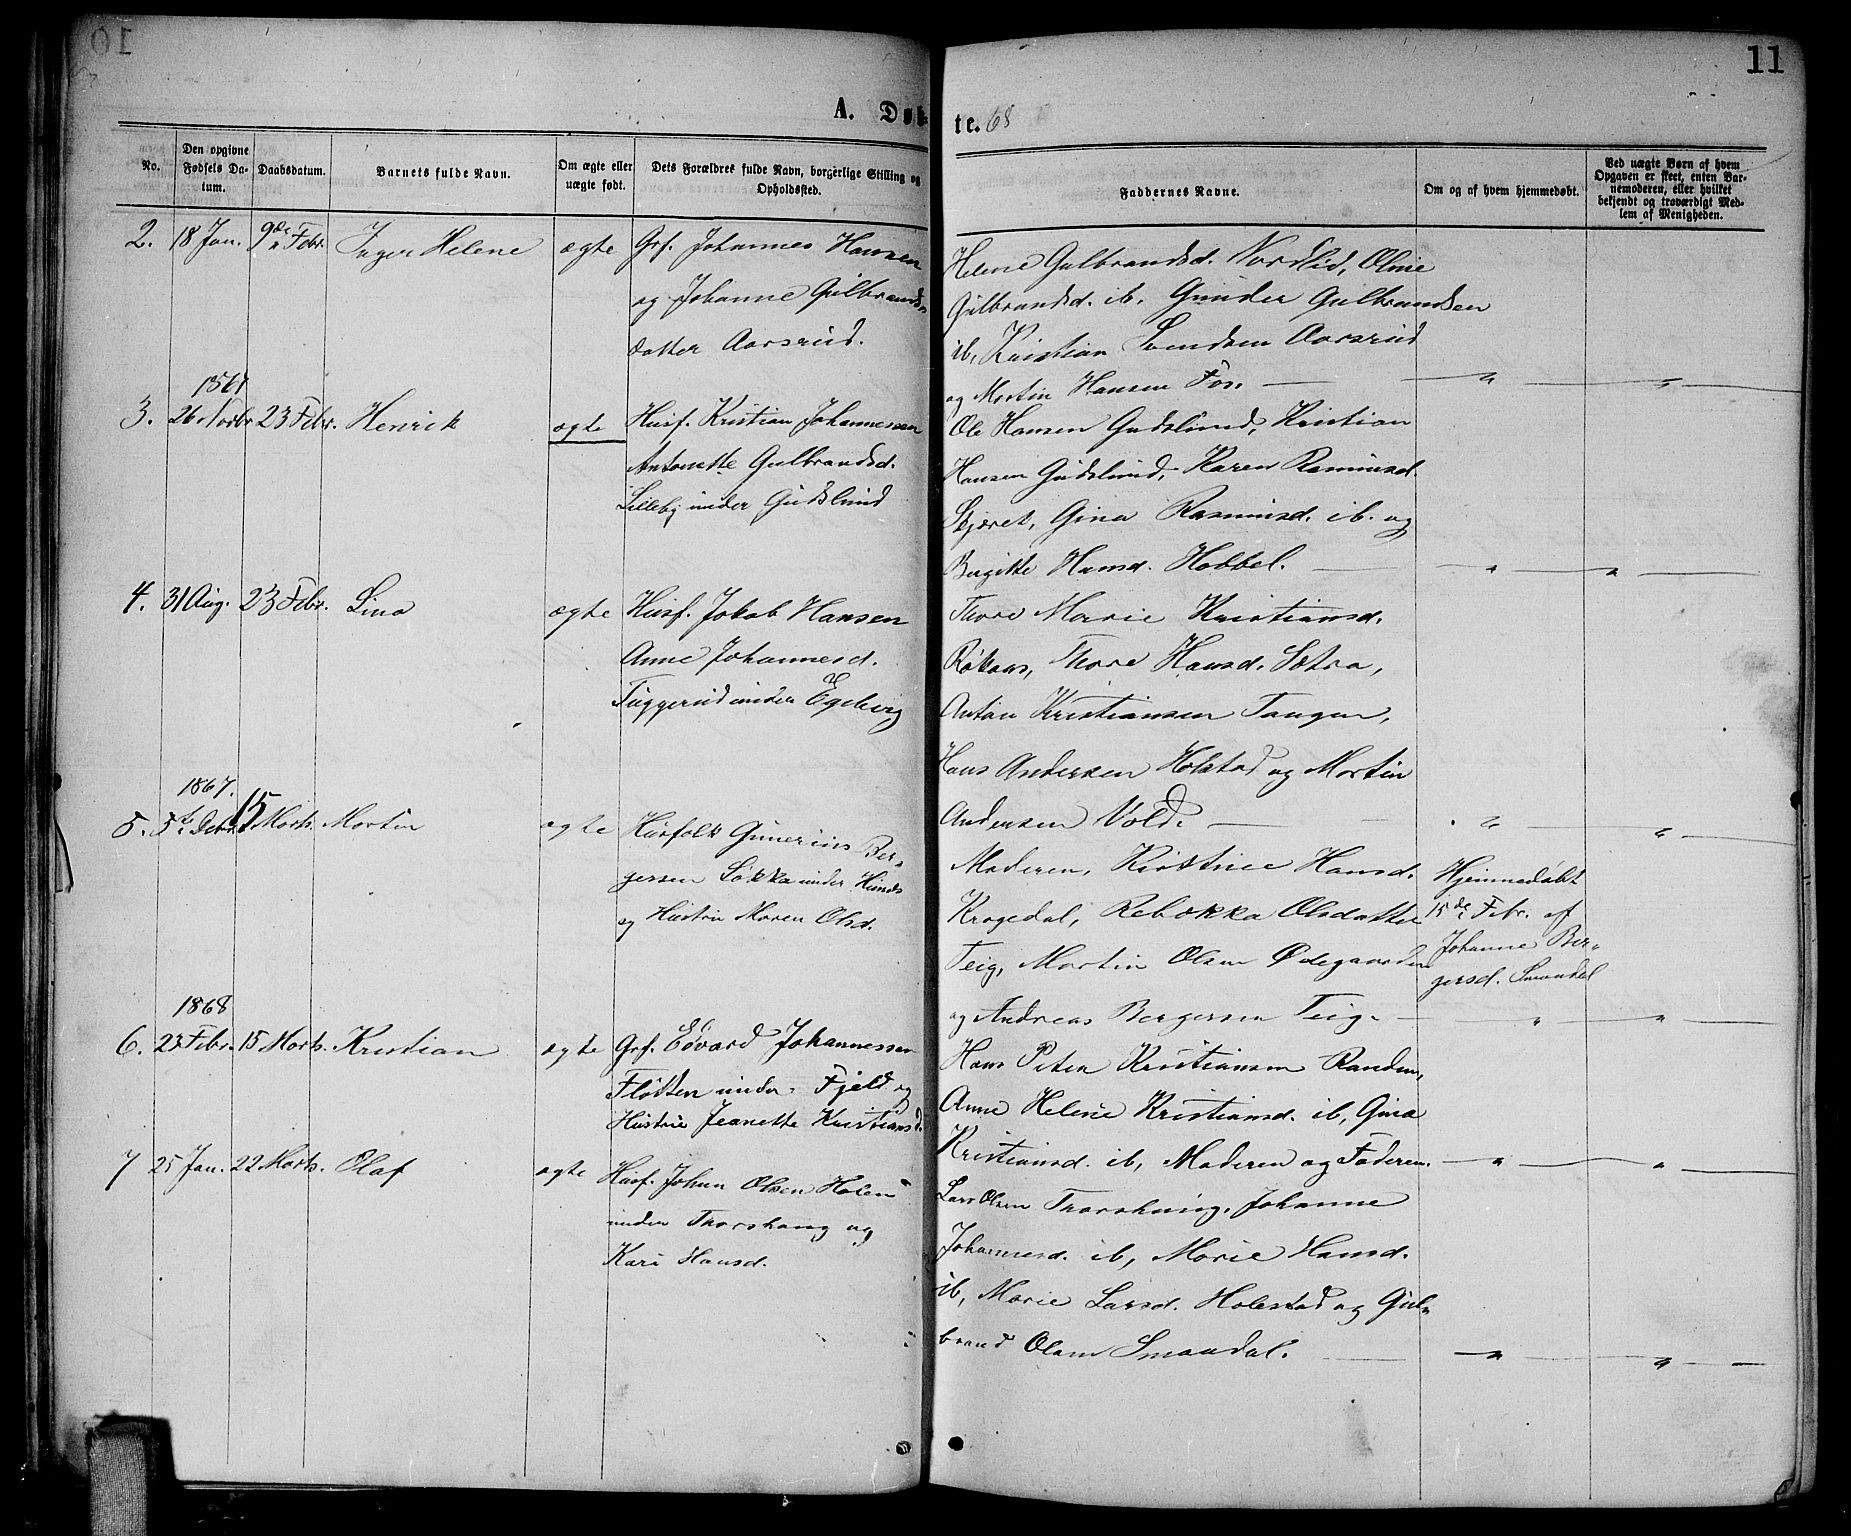 11
A. Døb-
te. 68
No.
Den opgivne Fødsels Da-tum.
Daabsdatum.
Barnets fulde Navn.
Om ægte eller uægte født.
Dets Forældres fulde Navn, borgerlige Stilling og Opholdssted.
Faddernes Navne.
Om og af hvem hjemmedøbt.
Ved uægte Børn af hvem Opgaven er skeet, enten Bar-nemoderen, eller hvilket bekjendt og troværdigt Med-lem af Menigheden.
2. 18 Jan. 9de Febr. Inger Helene ægte Grf. Johannes Hansen
og Johanne Gulbrands-
datter Aarsrud.
Helene Gulbrandsd. Nordlid, Oline
Gulbrandsd. ib. Gunder Gulbrandsen
ib, Kristian Svendsen Aarsrud
og Martin Hansen Fos. — " — "
1867
3. 26 Novbr 23 Febr. Henrik ægte Husf. Kristian Johannessen
Antonette Gulbrandsd.
Lilleby under Gudslund
Ole Hansen Gudslund, Kristian
Hansen Gudslund, Karen Rasmusd.
Skjæret, Gina Rasmusd. ib. og
Bergitte Hansd. Hobbel. — " — "
4. 31 Aug. 23 Febr. Lina ægte Husf. Jokob Hansen
Anne Johannesd.
Tuggerud under Egeberg
Thore Marie Kristiansd.
Røkaas, Thore Hansd. Sætra,
Anton Kristiansen Tangen,
Hans Andersen Holstad og Martin
Andersen Vold. — " — "
1867.
5. 5te Debr. 15 Marts. Martin ægte Husfolk Gunerius Ber-
gersen Løkka under Hunds
og Hustru Maren Olsd.
Moderen, Kristine Hansd.
Kragedal, Rebekka Olsdatter
Teig, Martin Olsen Ødegaarden
og Andreas Bergersen Teig. — " — "
Hjemmedøbt
15de Febr. af
Johanne Ber-
gersd. Smaadal
1868
6. 23 Febr. 15 Marts. Kristian ægte Grf. Edvard Johannessen
Fløtten under Fjeld og
Hustru Jeanette Kristiansd.
Hans Peter Kristiansen Randem,
Anne Helene Kristiansd. ib, Gina
Kristiansd. ib, Moderen og Faderen. — " — "
7 25 Jan. 22 Marts. Olaf ægte Husf. Johan Olsen Holen
under Thorshaug og
Kari Hansd.
Lars Olsen Thorshaug, Johanne
Johannesd. ib, Marie Hansd.
ib, Marie Larsd. Holestad og Gul-
brand Olsen Smaadal. — " — "